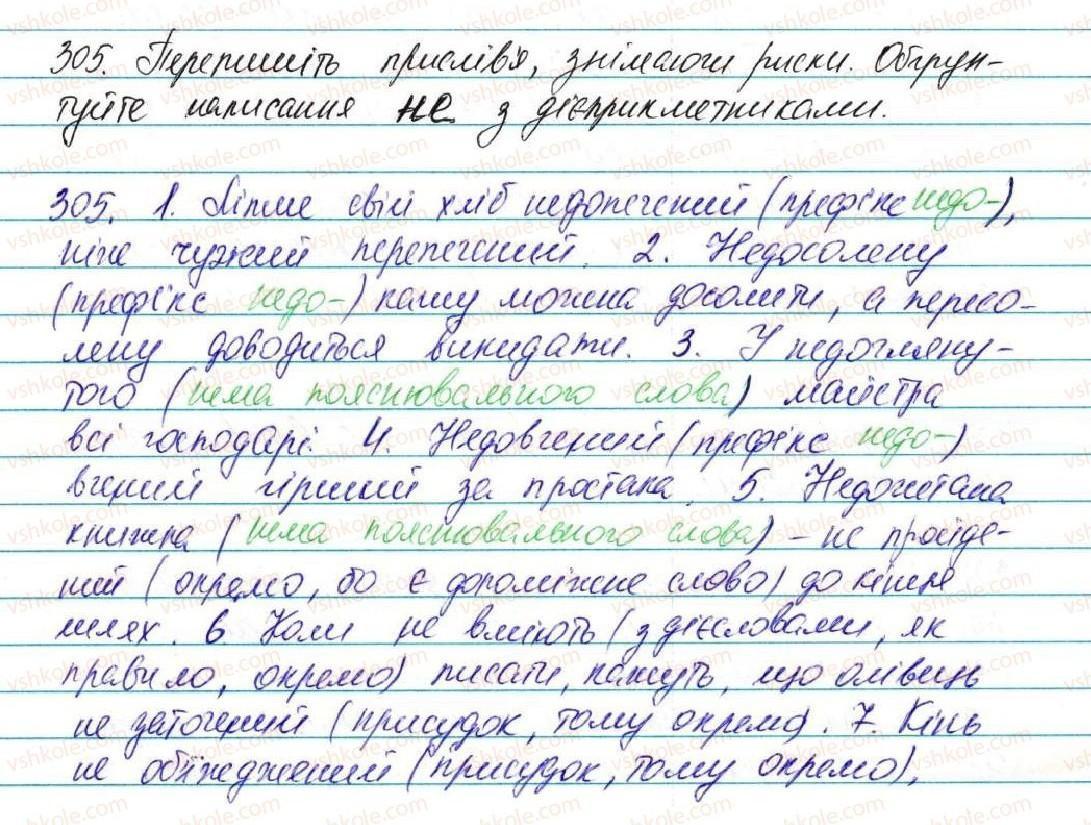 305. Перепишіть прислів'я, знімаючи риски. Обґрун-
туйте написання не з дієприкметниками.
305. 1. Ліпше свій хліб недопечений (префікс недо-),
ніж чужий перепечений. 2. Недосолену
(префікс недо-) кашу можна досолити, а пересо-
лену доводиться викидати. 3. У недогляну-
того (нема пояснювального слова) майстра
всі господарі. 4. Недовчений (префікс недо-)
вчений гірший за простака. 5. Недочитана
книжка (нема пояснювального слова) – не пройде-
ний (окремо, бо є допоміжне слово) до кінця
шлях. 6. Коли не вміють (з дієсловами, як
правило, окремо) писати, кажуть, що олівець
не заточений (присудок, тому окремо). 7. Кінь
не об'їжджений (присудок, тому окремо),